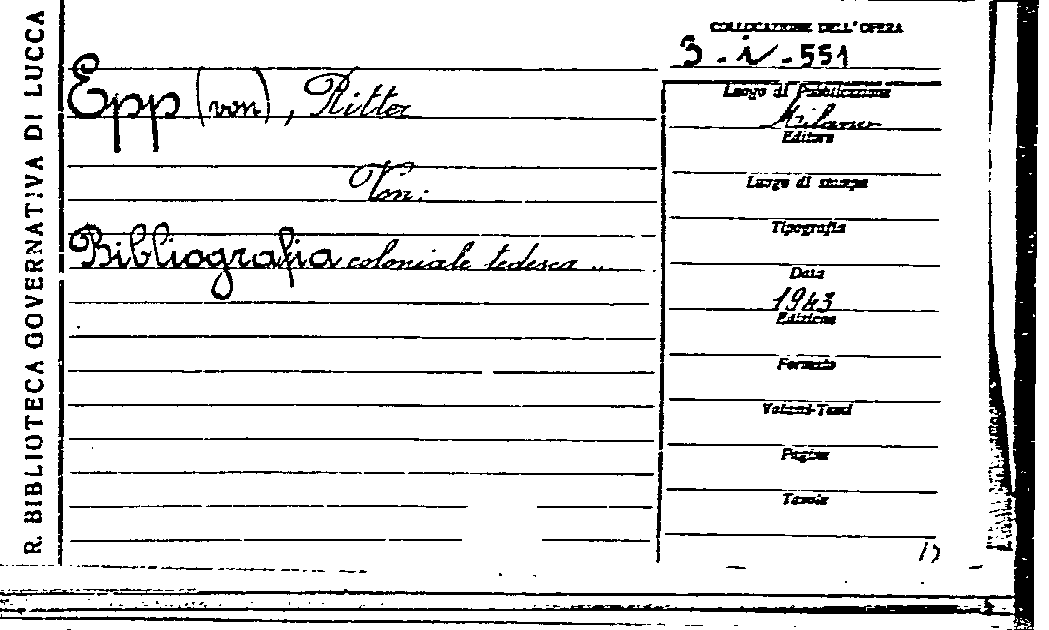 R. BIBLIOTECA GOVERNATIVA DI LUCCA
COLLOCAZIONE DELL'OPERA
3-i-551
Epp (von), Ritter
Vn:
Bibliografia coloniale tedesca ...
Luogo di Pubblicazione
Milano
Editore
Luogo di stampa
Tipografia
Data
1943
Edizione
Formato
Volumi-Tomi
Pagine
Tavole